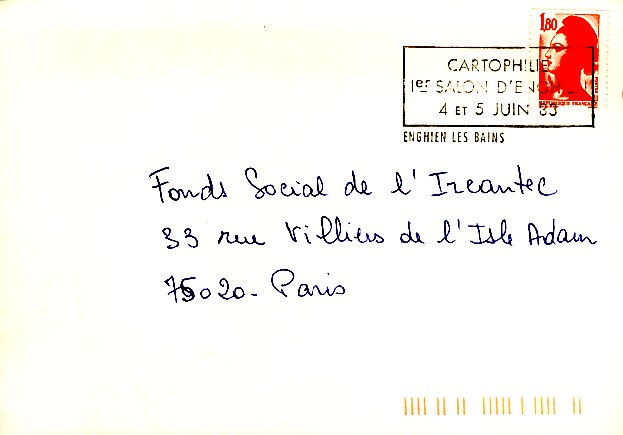 1,80
CARTOPHILIE
1er SALON D'ENGHIEN
4 ET 5 JUIN 83
RÉPUBLIQUE FRANÇAISE
ENGHIEN LES BAINS
Fonds Social de l'Ircantec
33 rue Villiers de l'Isle Adam
75020 - Paris